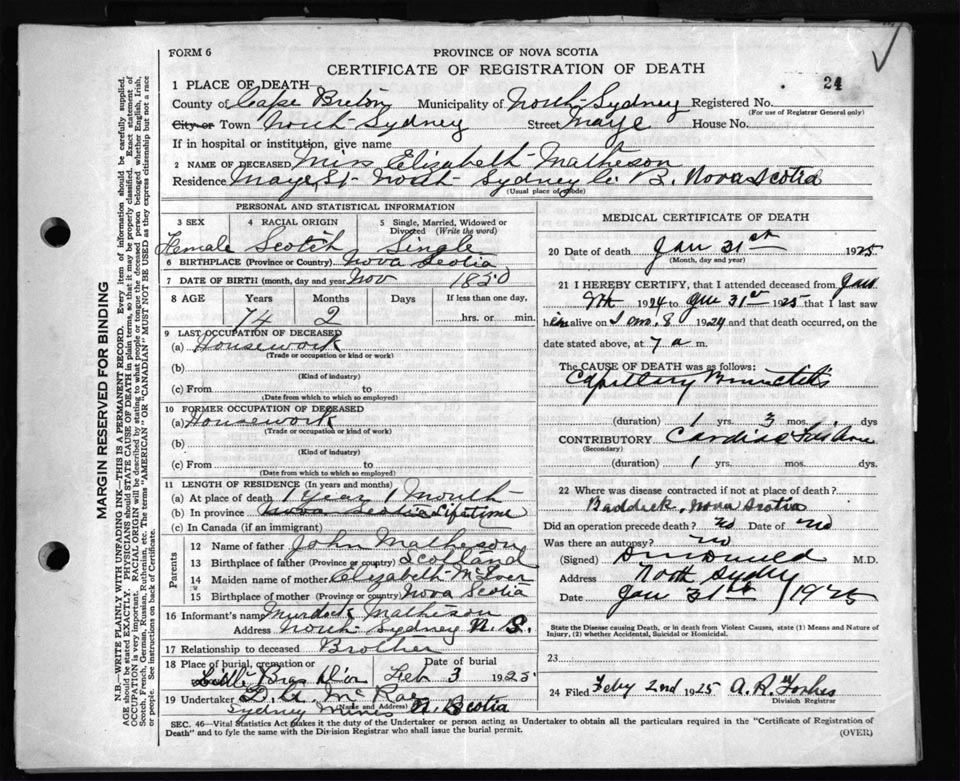 FORM 6
PROVINCE OF NOVA SCOTIA
CERTIFICATE OF REGISTRATION OF DEATH
24
1 PLACE OF DEATH
County of Cape Breton Municipality of North Sydney Registered No.
(For use of Registrar General only)
City or Town North Sydney Street Maye House No.
If in hospital or institution, give name
2 NAME OF DECEASED Miss Elizabeth Matheson
Residence Maye St North Sydney C. B. Nova Scotia
(Usual place of abode)
PERSONAL AND STATISTICAL INFORMATION
3 SEX 4 RACIAL ORIGIN 5 Single, Married, Widowed or Divorced (Write the word)
Female Scotch Single
6 BIRTHPLACE (Province or Country) Nova Scotia
7 DATE OF BIRTH (month, day and year) Nov 1850
8 AGE Years Months Days If less than one day,
74 2 hrs. or min.
9 LAST OCCUPATION OF DECEASED
(a) Housework
(Trade or occupation or kind or work)
(b)
(Kind of industry)
(c) From to
(Date from which to which so employed)
10 FORMER OCCUPATION OF DECEASED
(a) Housework
(Trade or occupation or kind of work)
(b)
(Kind of industry)
(c) From to
(Date from which to which so employed)
11 LENGTH OF RESIDENCE (In years and months)
(a) At place of death 1 Year 1 Month
(b) In province Nova Scotia Lifetime
(c) In Canada (if an immigrant)
Parents
12 Name of father John Matheson
13 Birthplace of father (Province or country) Scotland
14 Maiden name of mother Elizabeth McIver
15 Birthplace of mother (Province or country) Nova Scotia
16 Informant's name Murdock Matheson
Address North Sydney N. S.
17 Relationship to deceased Brother
18 Place of burial, cremation or Date of burial
Little Bras D'or Feb 3 1925
19 Undertaker D. A. McRae
(Name and Address)
Sydney Mines N. Scotia
MEDICAL CERTIFICATE OF DEATH
20 Date of death Jan 31st 1925
(Month, day and year)
21 I HEREBY CERTIFY, that I attended deceased from Jan
1924 to Jan 31st 1925 that I last saw
h er alive on 1924 and that death occurred, on
date stated above, at 7 a m.
The CAUSE OF DEATH was as follows:
Capillary Bronchitis
(duration) 1 yrs. 3 mos. dys
CONTRIBUTORY Cardiac Failure
(Secondary)
(duration) 1 yrs. mos. dys.
22 Where was disease contracted if not at place of death?
Baddeck, Nova Scotia
Did an operation precede death? No Date of No
Was there an autopsy? No
(Signed) M.D.
Address North Sydney
Date Jan 31st 1925
State the Disease causing Death, or in death from Violent Causes, state (1) Means and Nature of Injury, (2) whether Accidental, Suicidal or Homicidal.
23
24 Filed Feby 2nd 1925 A. R. Forbes
Division Registrar
SEC. 46—Vital Statistics Act makes it the duty of the Undertaker or person acting as Undertaker to obtain all the particulars required in the "Certificate of Registration of
Death" and to fyle the same with the Division Registrar who shall issue the burial permit. (OVER)
MARGIN RESERVED FOR BINDING
N.B.—WRITE PLAINLY WITH UNFADING INK—THIS IS A PERMANENT RECORD. Every item of information should be carefully supplied.
AGE should be stated EXACTLY. PHYSICIANS should STATE CAUSE OF DEATH in plain terms, so that it may be properly classified. Exact statement of
OCCUPATION is very important. RACIAL ORIGIN will be described by stating to what people or tongue the deceased person belonged whether English, Irish,
Scotch, French, German, Russian, Ruthenian, etc. The terms "AMERICAN" OR "CANADIAN" MUST NOT BE USED as they express citizenship but not a race
or people. See instructions on back of Certificate.